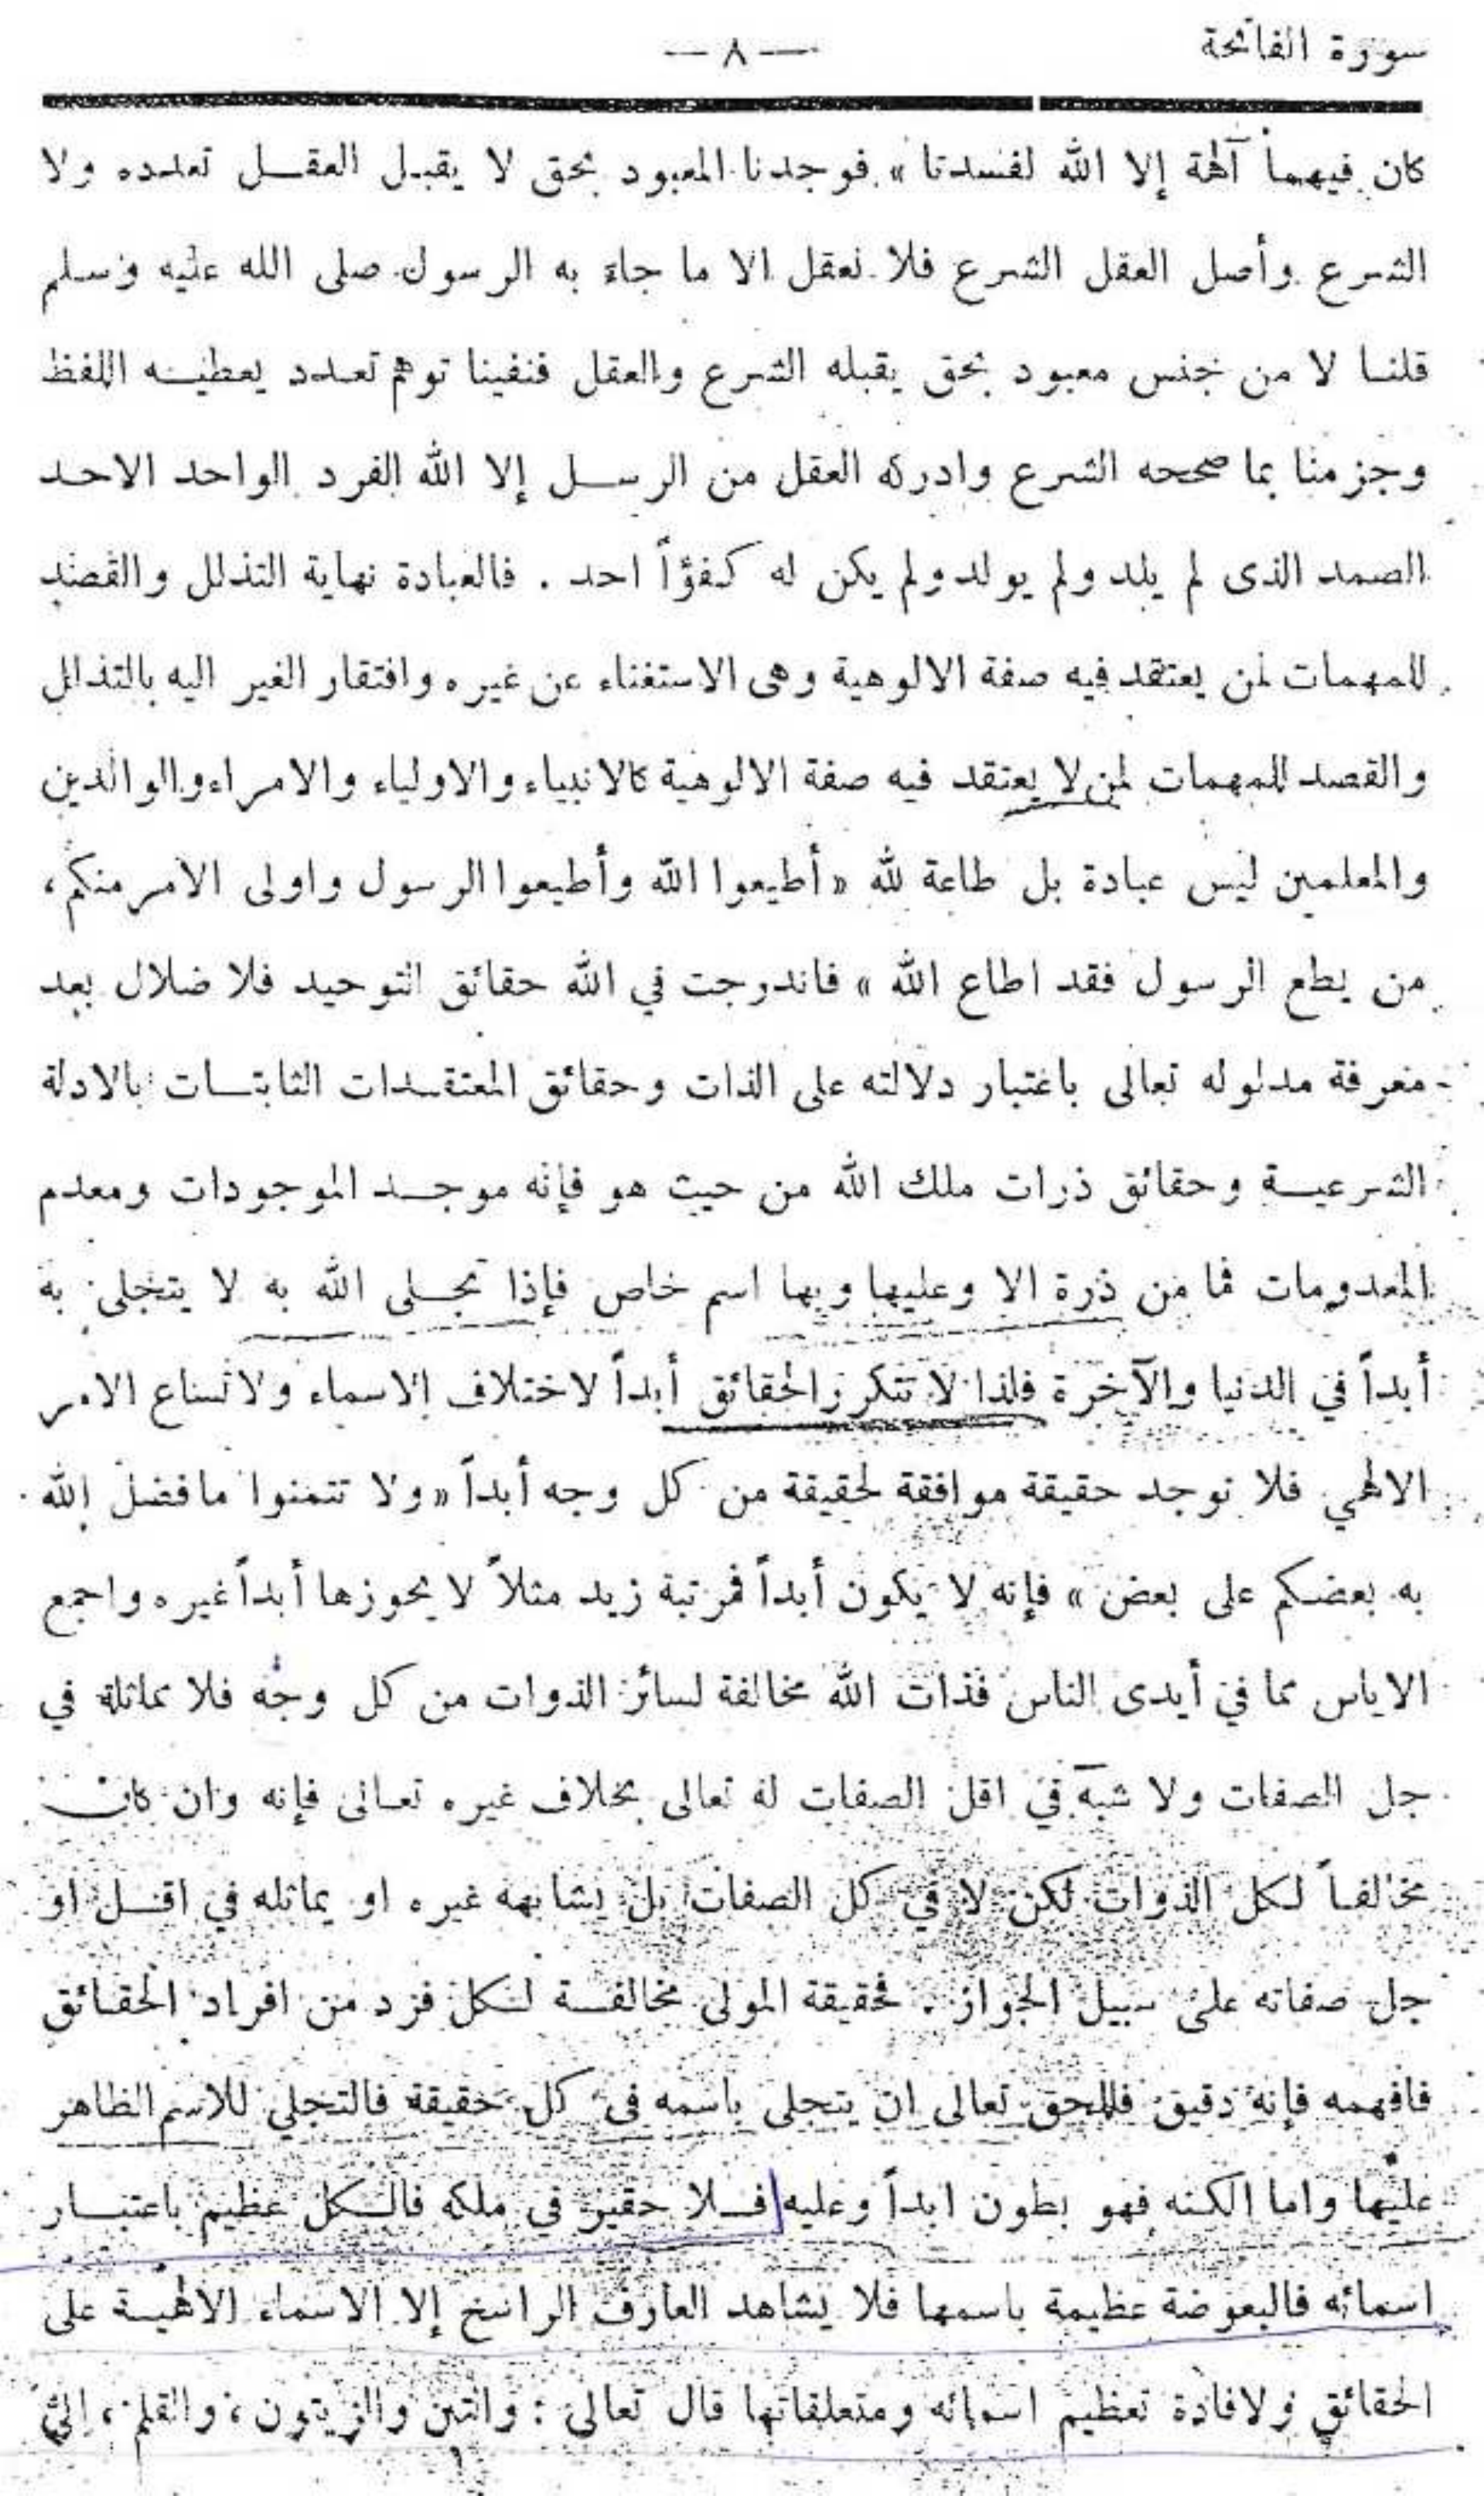 سورة الفاتحة
— ٨ —
كان فيهما آلهة إلا الله لفسدتا » فوجدنا المعبود بحق لا يقبل العقل تعدده ولا
الشرع وأصل العقل الشرع فلا نعقل الا ما جاء به الرسول صلى الله عليه وسلم
قلنا لا من جنس معبود بحق يقبله الشرع والعقل فنفينا توهم تعدد يعطيه اللفظ
وجزمنا بما صححه الشرع وادركه العقل من الرسل إلا الله الفرد الواحد الاحد
الصمد الذى لم يلد ولم يولد ولم يكن له كفؤاً احد . فالعبادة نهاية التذلل والقصد
للمهمات لمن يعتقد فيه صفة الالوهية وهى الاستغناء عن غيره وافتقار الغير اليه بالتذلل
والقصد للمهمات لمن لا يعتقد فيه صفة الالوهية كالانبياء والاولياء والامراء والوالدين
والمعلمين ليس عبادة بل طاعة لله « أطيعوا الله وأطيعوا الرسول واولى الامر منكم ،
من يطع الرسول فقد اطاع الله » فاندرجت في الله حقائق التوحيد فلا ضلال بعد
معرفة مدلوله تعالى باعتبار دلالته على الذات وحقائق المعتقدات الثابتات بالادلة
الشرعية وحقائق ذرات ملك الله من حيث هو فإنه موجد الموجودات ومعدم
المعدومات فما من ذرة الا وعليها وبها اسم خاص فإذا تجلى الله به لا يتجلى به
أبداً في الدنيا والآخرة فلذا لا تتكرر الحقائق أبداً لاختلاف الاسماء ولاتساع الامر
الالهي فلا توجد حقيقة موافقة لحقيقة من كل وجه أبداً « ولا تتمنوا ما فضل الله
به بعضكم على بعض » فإنه لا يكون أبداً فمرتبة زيد مثلاً لا يحوزها أبداً غيره واجمع
الاياس مما في أيدى الناس فذات الله مخالفة لسائر الذوات من كل وجه فلا مماثلة في
جل الصفات ولا شبه في اقل الصفات له تعالى بخلاف غيره تعالى فإنه وان كان
مخالفاً لكل الذوات لكن لا في كل الصفات بل يشابهه غيره او يماثله في اقل او
جل صفاته على سبيل الجواز . فحقيقة المولى مخالفة لكل فرد من افراد الحقائق
فافهمه فإنه دقيق فللحق تعالى ان يتجلى باسمه فى كل حقيقة فالتجلي للاسم الظاهر
عليها واما الكنه فهو بطون ابداً وعليه فلا حقير في ملكه فالكل عظيم باعتبار
اسمائه فالبعوضة عظيمة باسمها فلا يشاهد العارف الراسخ إلا الاسماء الالهية على
الحقائق ولافادة تعظيم اسمائه ومتعلقاتها قال تعالى : والتين والزيتون ، والقلم ،